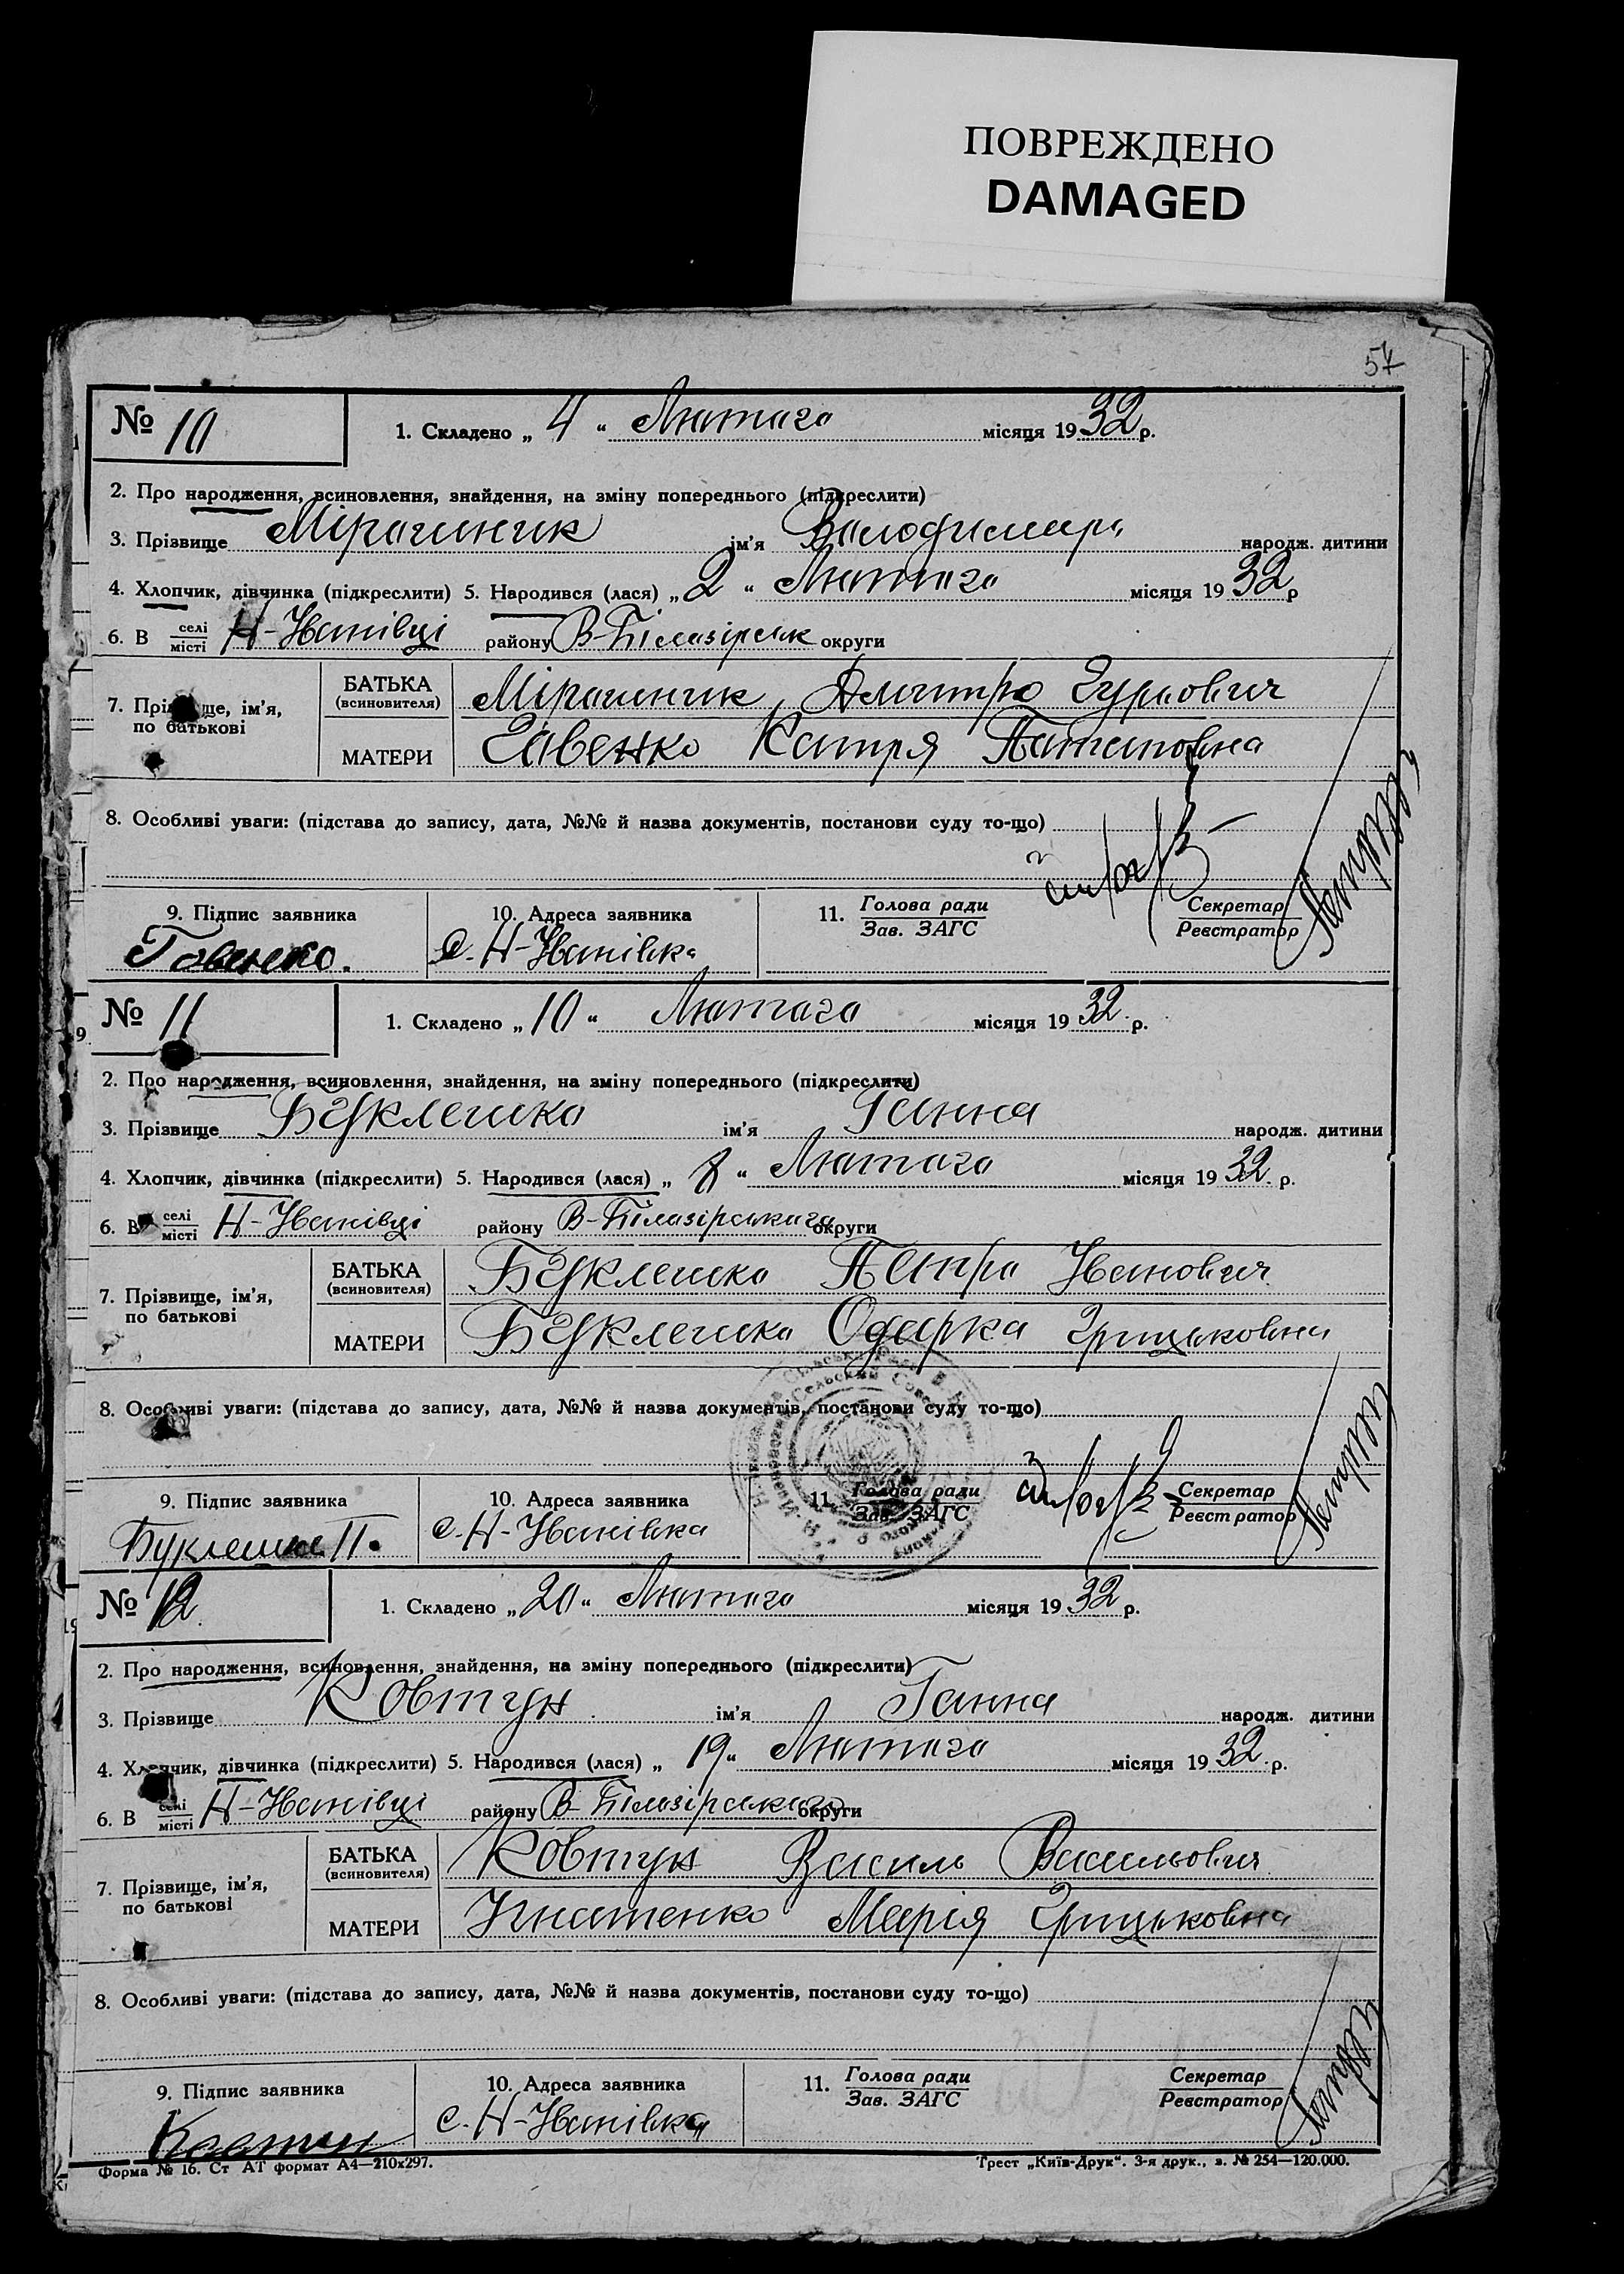 ПОВРЕЖДЕНО
DAMAGED
54
№ 10
1. Складено „ 4 “ Лютого місяця 1932 р.
2. Про народження, всиновлення, знайдення, на зміну попереднього (підкреслити)
3. Прізвище Мірошник ім'я Володимир народж. дитини
4. Хлопчик, дівчинка (підкреслити) 5. Народився (лася) „ 2 “ Лютого місяця 1932 р
6. В селі місті Н-Іванівці району В-Білазірськ округи
7. Прізвище, ім'я, по батькові
БАТЬКА (всиновителя) Мірошник Дмитро Гурович
МАТЕРИ Гавенко Катря Потаповна
8. Особливі уваги: (підстава до запису, дата, №№ й назва документів, постанови суду то-що)
9. Підпис заявника 10. Адреса заявника 11. Голова ради Зав. ЗАГС Секретар Реєстратор
Говенко. с. Н-Іванівка
№ 11
1. Складено „ 10 “ Лютого місяця 1932 р.
2. Про народження, всиновлення, знайдення, на зміну попереднього (підкреслити)
3. Прізвище Буклешко ім'я Ганна народж. дитини
4. Хлопчик, дівчинка (підкреслити) 5. Народився (лася) „ 8 “ Лютого місяця 1932 р.
6. В селі місті Н-Іванівці району В-Білазірського округи
7. Прізвище, ім'я, по батькові
БАТЬКА (всиновителя) Буклешко Петро Іванович
МАТЕРИ Буклешко Одарка Грицьковна
8. Особливі уваги: (підстава до запису, дата, №№ й назва документів, постанови суду то-що)
9. Підпис заявника 10. Адреса заявника 11. Голова ради Зав. ЗАГС Секретар Реєстратор
Буклешко П. с. Н-Іванівка
№ 12
1. Складено „ 20 “ Лютого місяця 1932 р.
2. Про народження, всиновлення, знайдення, на зміну попереднього (підкреслити)
3. Прізвище Ковтун ім'я Ганна народж. дитини
4. Хлопчик, дівчинка (підкреслити) 5. Народився (лася) „ 19 “ Лютого місяця 1932 р.
6. В селі місті Н-Іванівці району В-Білазірського округи
7. Прізвище, ім'я, по батькові
БАТЬКА (всиновителя) Ковтун Василь Васильович
МАТЕРИ Ігнатенко Марія Грицьковна
8. Особливі уваги: (підстава до запису, дата, №№ й назва документів, постанови суду то-що)
9. Підпис заявника 10. Адреса заявника 11. Голова ради Зав. ЗАГС Секретар Реєстратор
Ковтун с. Н-Іванівка
Форма № 16. Ст АТ формат А4—210х297. Трест „Київ-Друк“. 3-я друк., з. № 254—120.000.